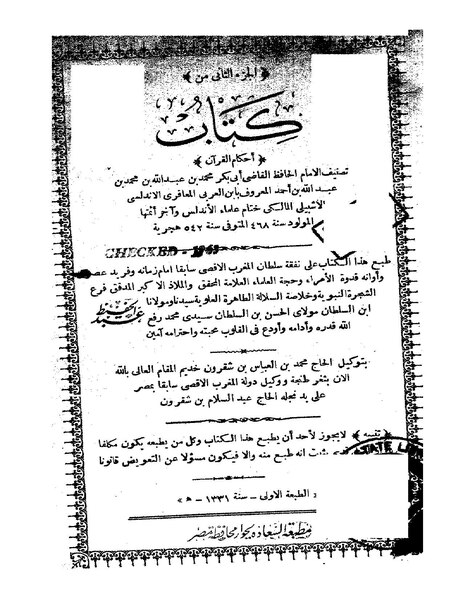 ﴿ الجزء الثاني من ﴾
كتاب
﴿ أحكام القرآن ﴾
تصنيف الامام الحافظ القاضي أبي بكر محمد بن عبد الله بن محمد بن
عبد الله بن أحمد المعروف بابن العربي المعافري الاندلسي
الاشبيلي المالكي ختام علماء الأندلس وآخر أئمتها
المولود سنة ٤٦٨ المتوفى سنة ٥٤٢ هجرية
CHECKED - 1963
طبع هذا الكتاب على نفقة سلطان المغرب الاقصى سابقا امام زمانه وفريد عصره
وأوانه قدوة الأمراء وحجة العلماء العلامة المحقق والملاذ الاكبر المدقق فرع
الشجرة النبوية وخلاصة السلالة الطاهرة العلوية سيدنا ومولانا
عبد الحفيظ
ابن السلطان مولاي الحسن بن السلطان سيدي محمد رفع
الله قدره وأدامه وأودع في القلوب محبته واحترامه آمين
بتوكيل الحاج محمد بن العباس بن شقرون خديم المقام العالي بالله
الان بثغر طنجة ووكيل دولة المغرب الاقصى سابقا بمصر
على يد نجله الحاج عبد السلام بن شقرون
﴿ تنبيه ﴾ لا يجوز لأحد أن يطبع هذا الكتاب وكل من يطبعه يكون مكلفا
يثبت انه طبع منه والا فيكون مسؤلا عن التعويض قانونا
STATE LI
« الطبعة الاولى - سنة ١٣٣١ ه »
مطبعة السعادة بجوار محافظة مصر